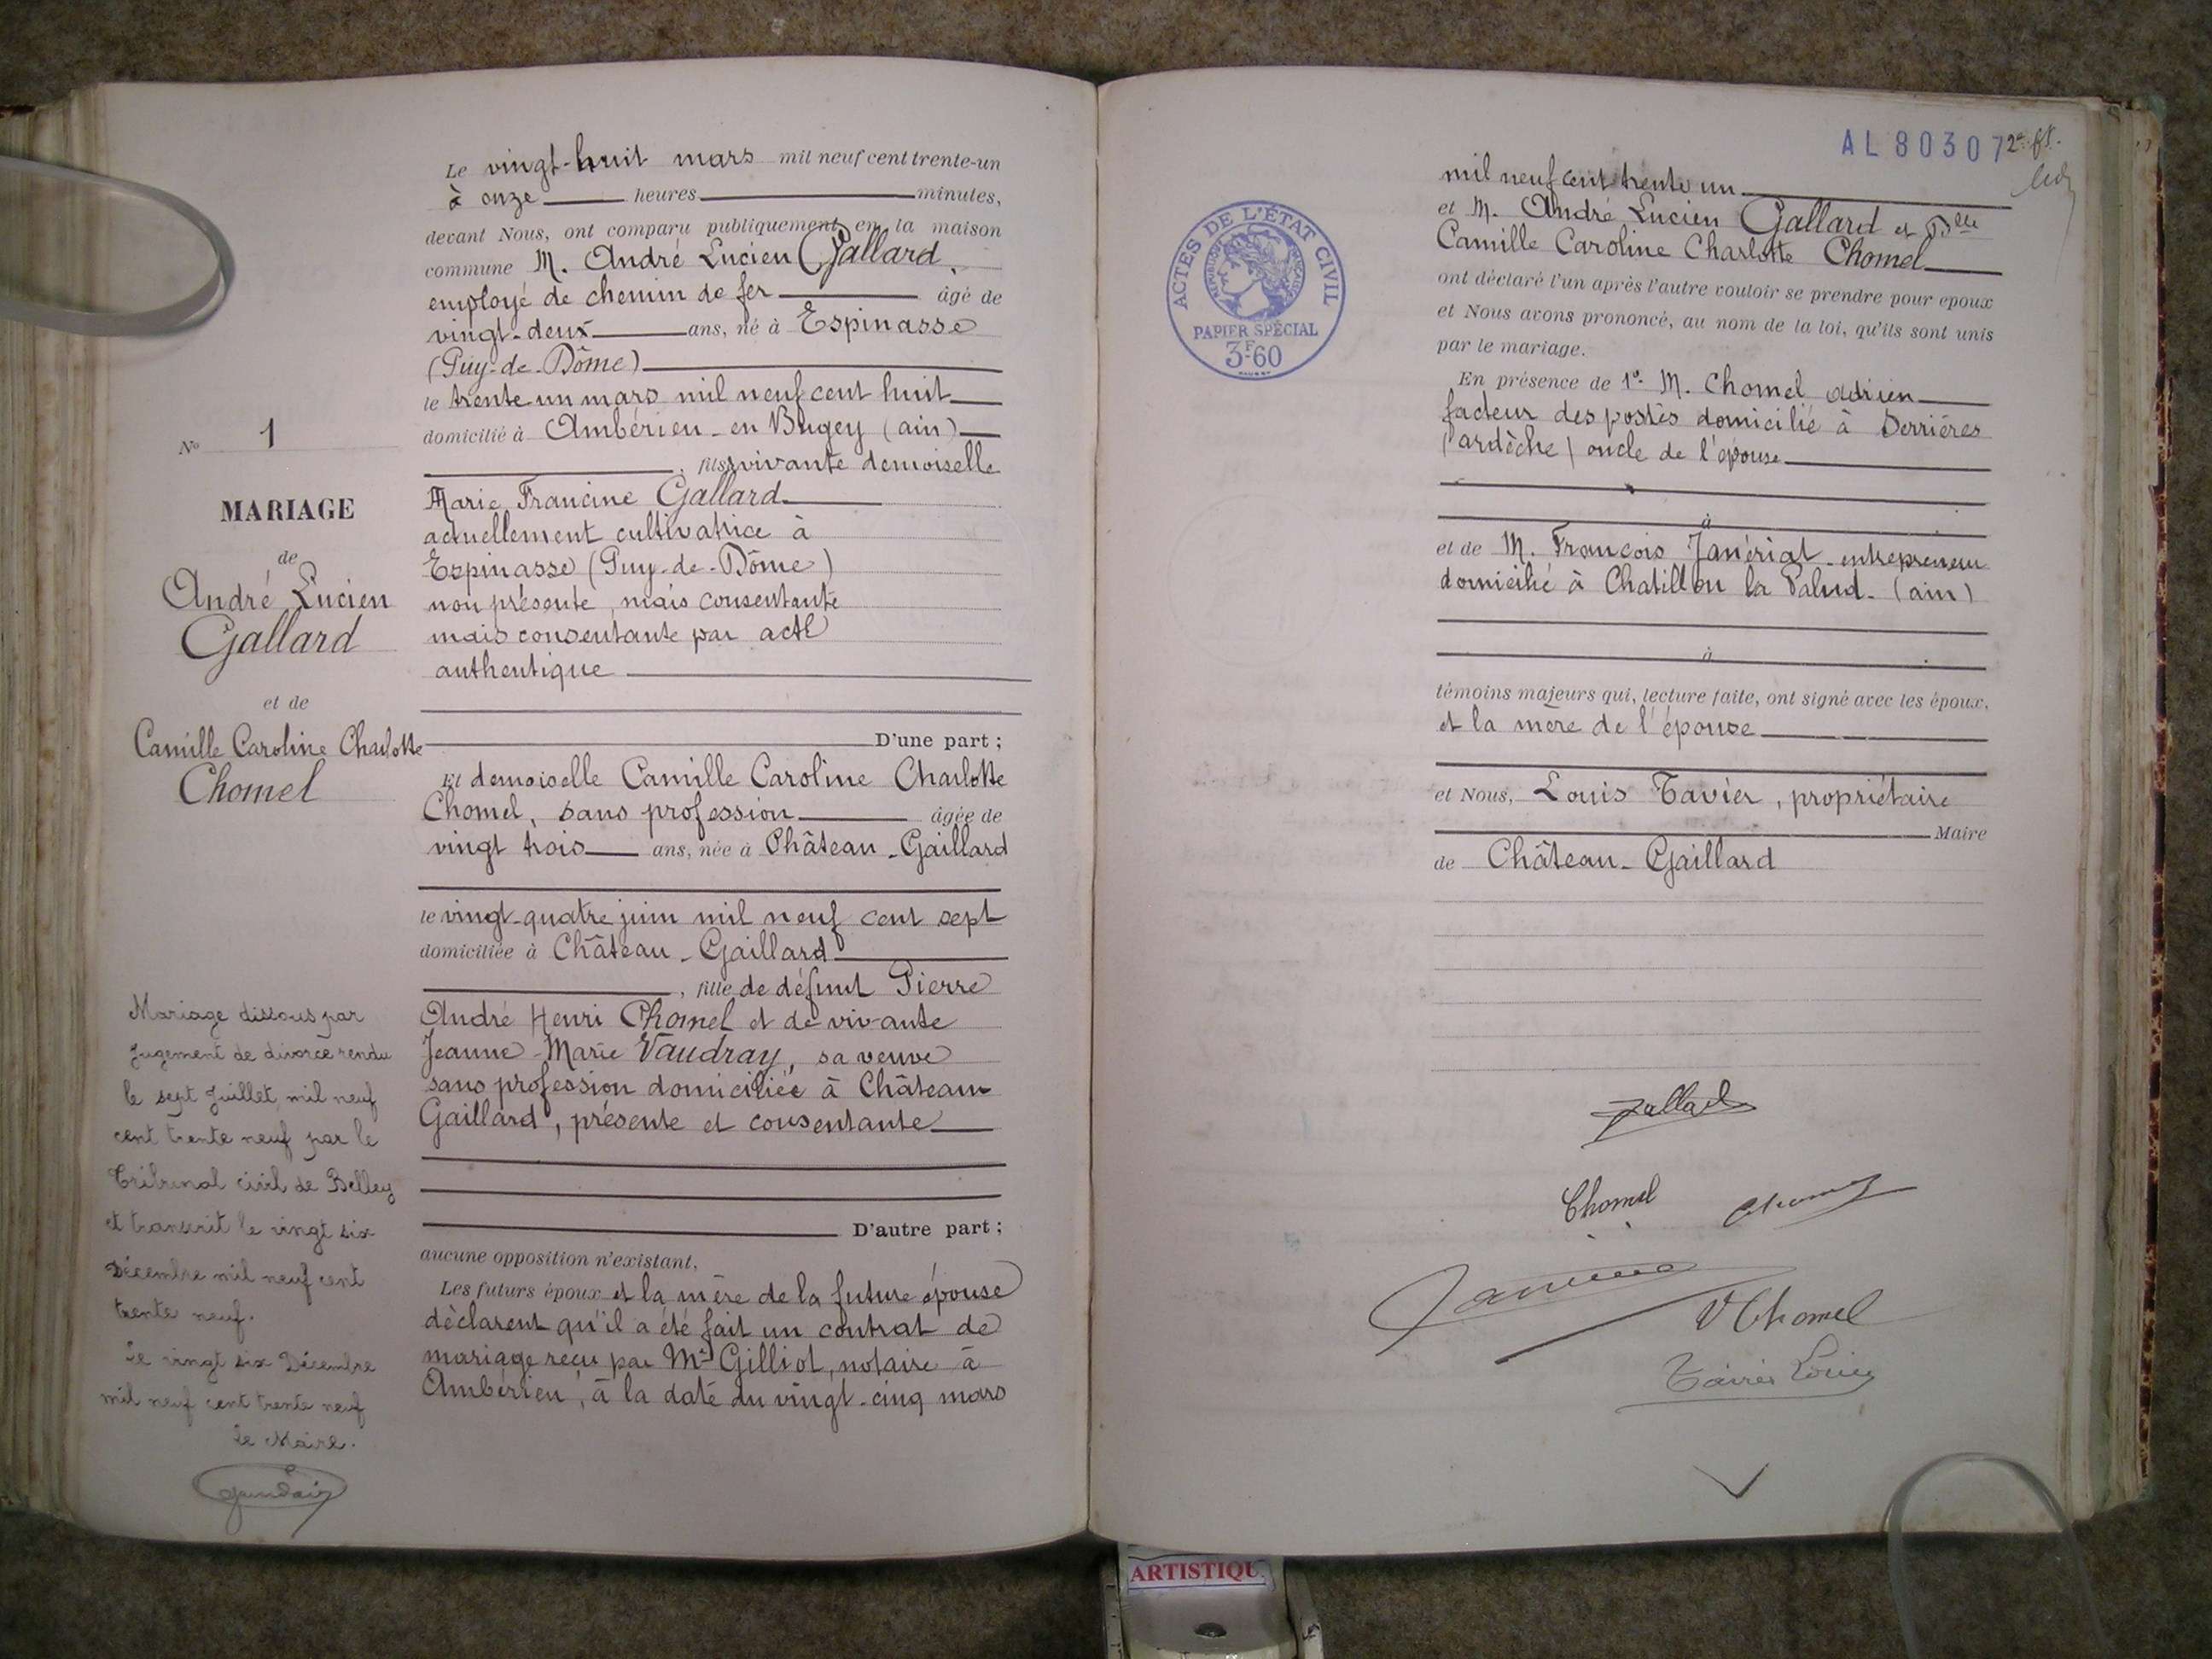 Nº 1
MARIAGE
de
André Lucien
Gallard
et de
Camille Caroline Charlotte
Chomel
Mariage dissous par
jugement de divorce rendu
le sept Juillet mil neuf
cent trente neuf par le
Tribunal civil de Belley
et transcrit le vingt six
Décembre mil neuf cent
trente neuf.
Le vingt six Décembre
mil neuf cent trente neuf
Le Maire.
Le vingt-huit mars mil neuf cent trente-un
à onze heures minutes,
devant Nous, ont comparu publiquement en la maison
commune M. André Lucien Gallard,
employé de chemin de fer âgé de
vingt-deux ans, né à Espinasse
(Puy-de-Dôme)
le trente un mars mil neuf cent huit
domicilié à Ambérieu-en Bugey (ain)
, fils vivante demoiselle
Marie Francine Gallard
actuellement cultivatrice à
Espinasse (Puy-de-Dôme)
non présente, mais consentante
mais consentante par acte
authentique
D'une part ;
Et demoiselle Camille Caroline Charlotte
Chomel, sans profession âgée de
vingt trois ans, née à Château-Gaillard
le vingt-quatre juin mil neuf cent sept
domiciliée à Château-Gaillard
, fille de défunt Pierre
André Henri Chomel et de vivante
Jeanne-Marie Vaudray, sa veuve
sans profession domiciliée à Château
Gaillard, présente et consentante
D'autre part ;
aucune opposition n'existant,
Les futurs époux et la mère de la future épouse
déclarent qu'il a été fait un contrat de
mariage reçu par Me Gilliot, notaire à
Ambérieu, à la date du vingt-cinq mars
AL 80307
ACTES DE L'ÉTAT CIVIL
RÉPUBLIQUE FRANÇAISE
PAPIER SPÉCIAL
3F60
mil neuf cent trente un
et M. André Lucien Gallard et Dlle
Camille Caroline Charlotte Chomel
ont déclaré l'un après l'autre vouloir se prendre pour époux
et Nous avons prononcé, au nom de la loi, qu'ils sont unis
par le mariage.
En présence de 1º- M. Chomel Adrien
facteur des postes domicilié à Serrières
(ardèche) oncle de l'épouse
à
et de M. François Janériat entrepreneur
domicilié à Chatillon la Palud. (ain)
à
témoins majeurs qui, lecture faite, ont signé avec les époux,
et la mère de l'épouse
et Nous, Louis Tavier, propriétaire
Maire
de Château-Gaillard
Gallard
Chomel Chomel
V Chomel
Tavier Louis
ARTISTIQU